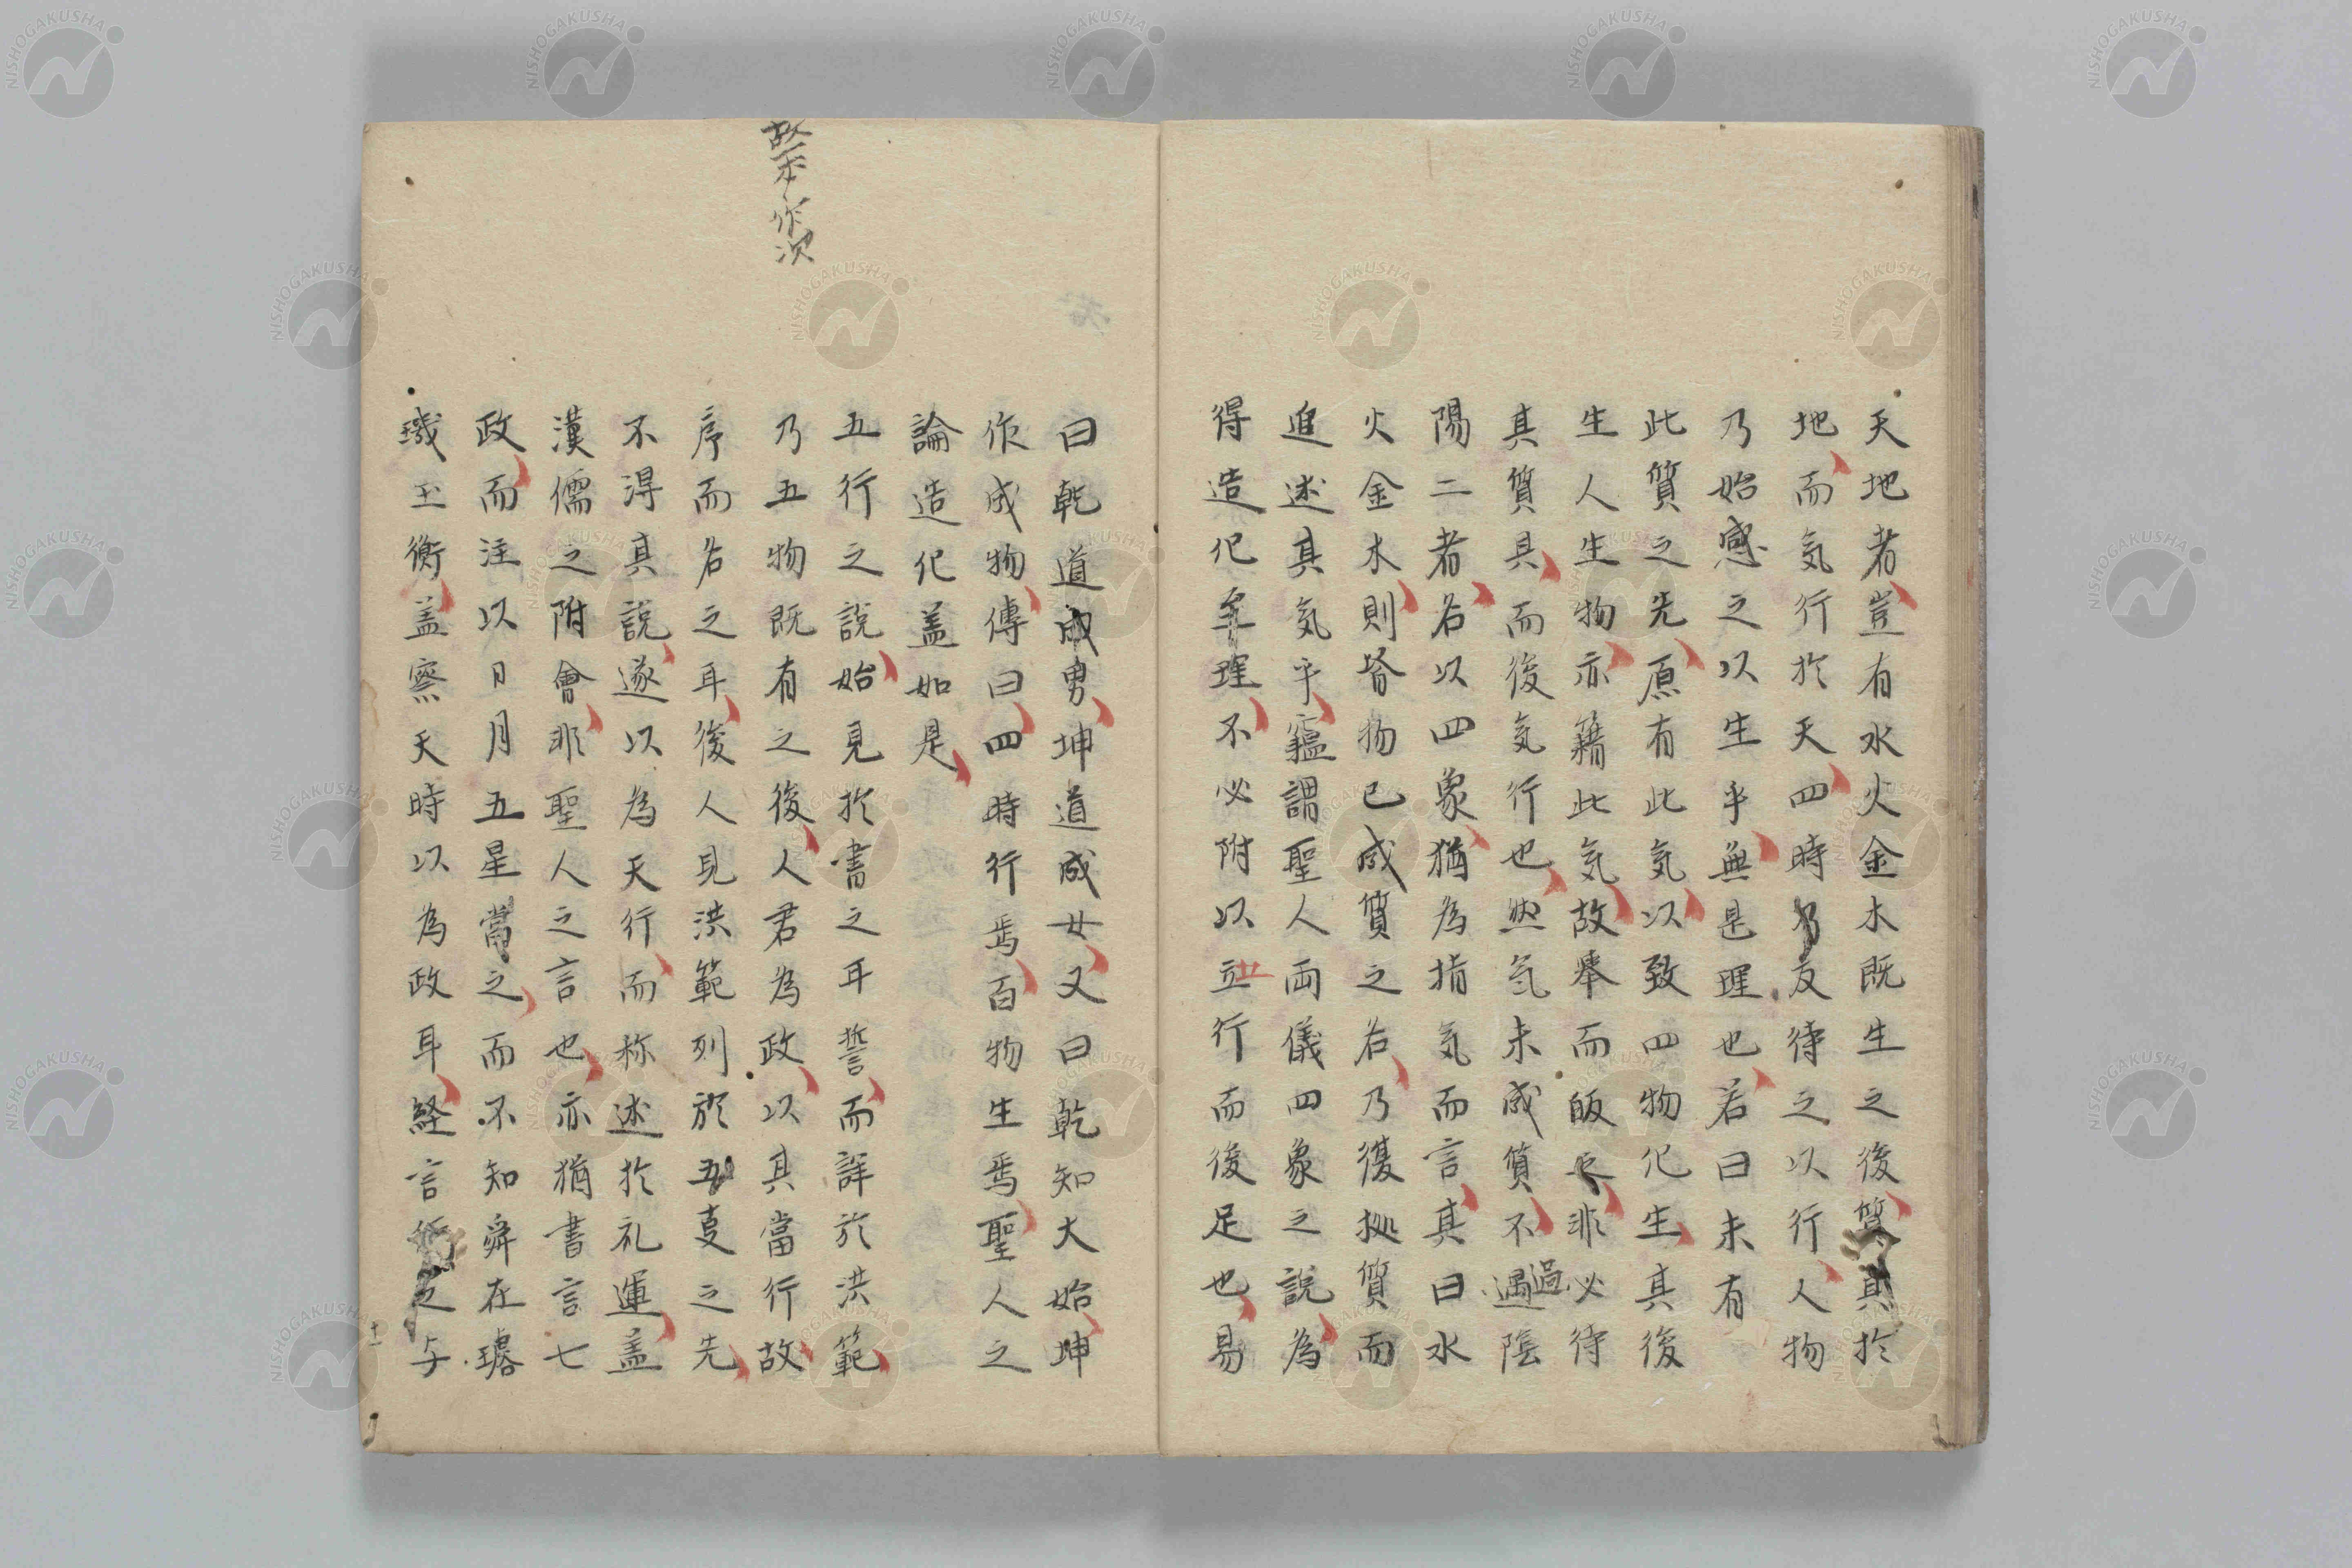 天地者豈有水火金木既生之後質具於
地而気行於天四時乃反待之以行人物
乃始感之以生乎無是理也若曰未有
此質之先原有此気以致四物化生其後
生人生物亦籍此気故舉而皈之非必待
其質具而後気行也然気未成質不過陰
陽二者名以四象猶為指気而言其曰水
火金木則皆物已成質之名乃復拠質而
追述其気乎竊謂聖人両儀四象之説為
得造化至理不必附以五行而後足也易
曰乾道成男坤道成女又曰乾知大始坤
作成物傳曰四時行焉百物生焉聖人之
論造化蓋如是
五行之説始見於書之甘誓而詳於洪範
乃五物既有之後人君為政以其當行故
故不作次
序而名之耳後人見洪範列於五事之先
不得其説遂以為天行而称述於礼運盖
漢儒之附會非聖人之言也亦猶書言七
政而注以日月五星當之而不知舜在璿
璣玉衡盖察天時以為政耳経言之与
十一
NISHOGAKUSHA